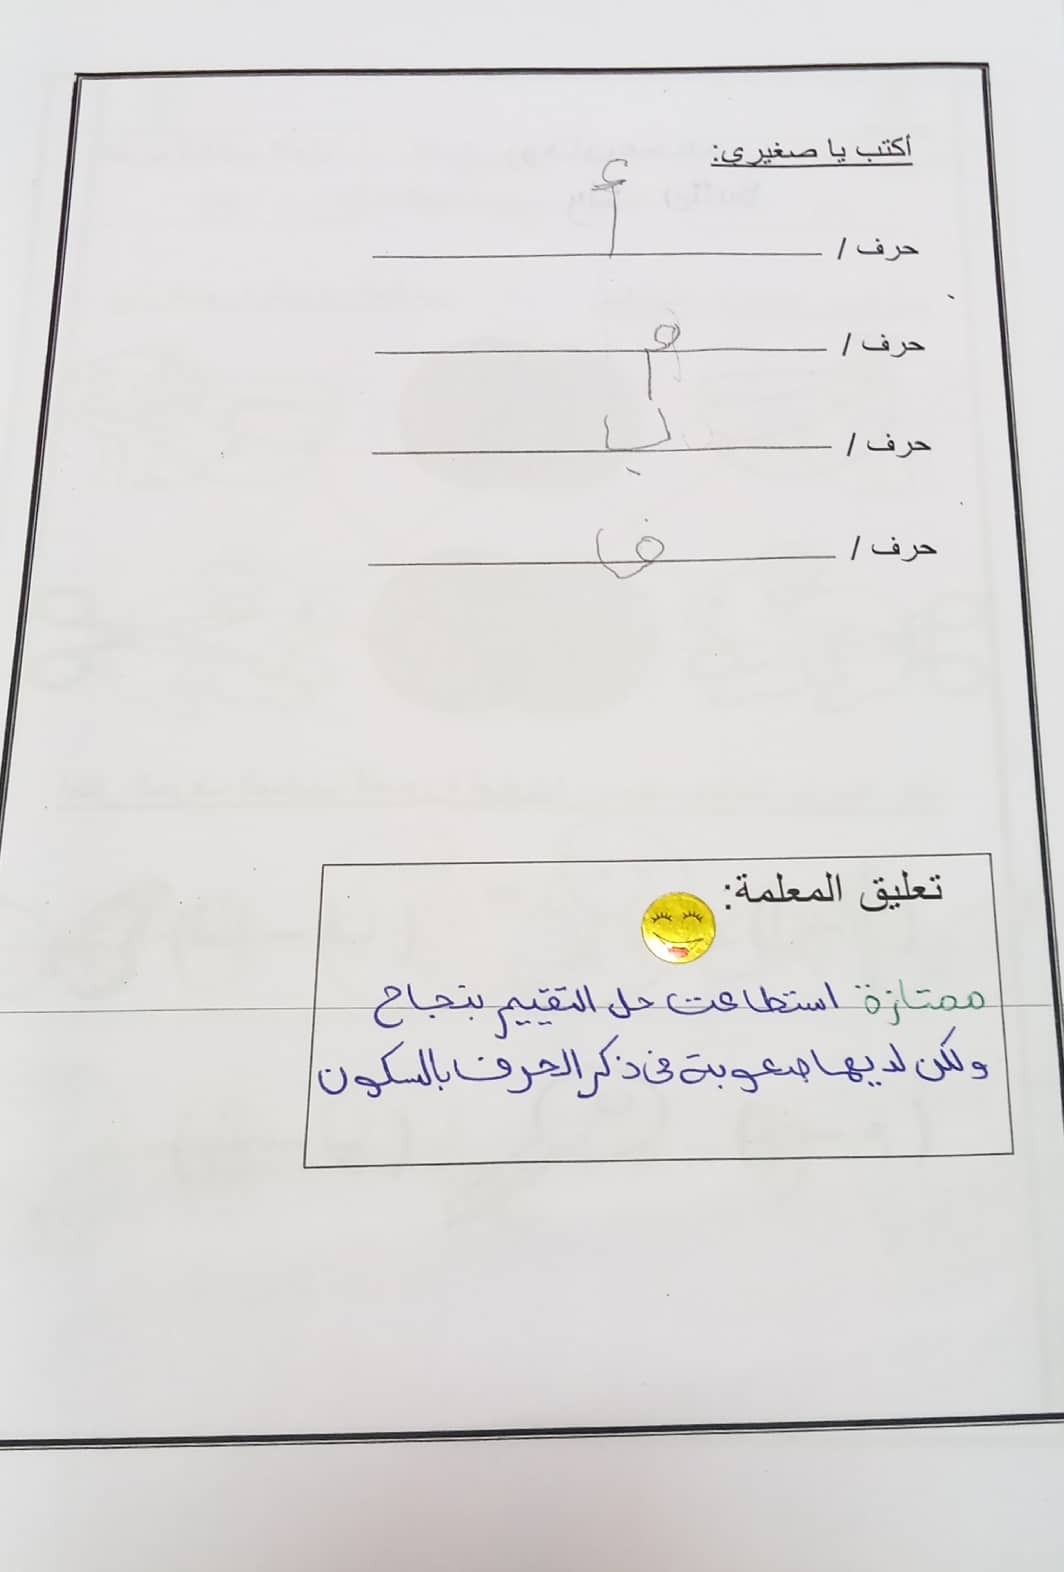 أكتب يا صغيري:
حرف / أ
حرف / م
حرف / ب
حرف / ف
تعليق المعلمة:
ممتازة استطاعت حل التقييم بنجاح
ولكن لديها صعوبة في ذكر الحرف بالسكون